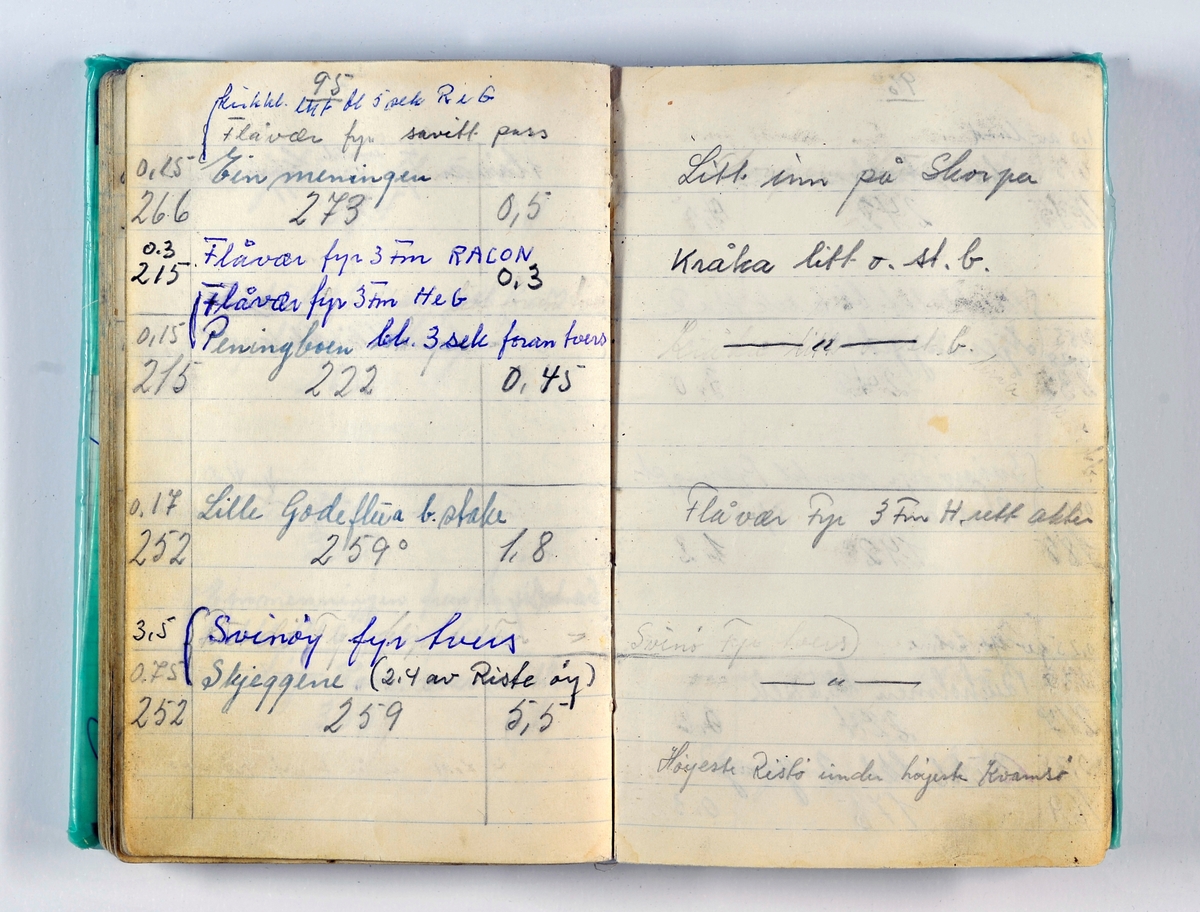 95
bl 5 sek R e G
Flåvær fyr savitt pass
0,15 Ein meningen
266 273 0,5
0.3 Flåvær fyr 3 Fm RACON
215 0,3
Flåvær fyr 3 Fm H e G
0,15 Peningboen bl. 3 sek foran tvers
215 222 0,45
0.17 Lille Godeflua b. stake
252 259° 1,8
3,5 Svinøy fyr tvers
0.75 Skjeggene (2.4 av Riste øy)
252 259 5,5
96
Litt inn på Skorpa
Kråka litt o. st. b.
— " —
Flåvær Fyr 3 Fm H. rett akter
Svinø Fyr tvers)
— " —
Høyeste Ristø under høyeste Kvamsø